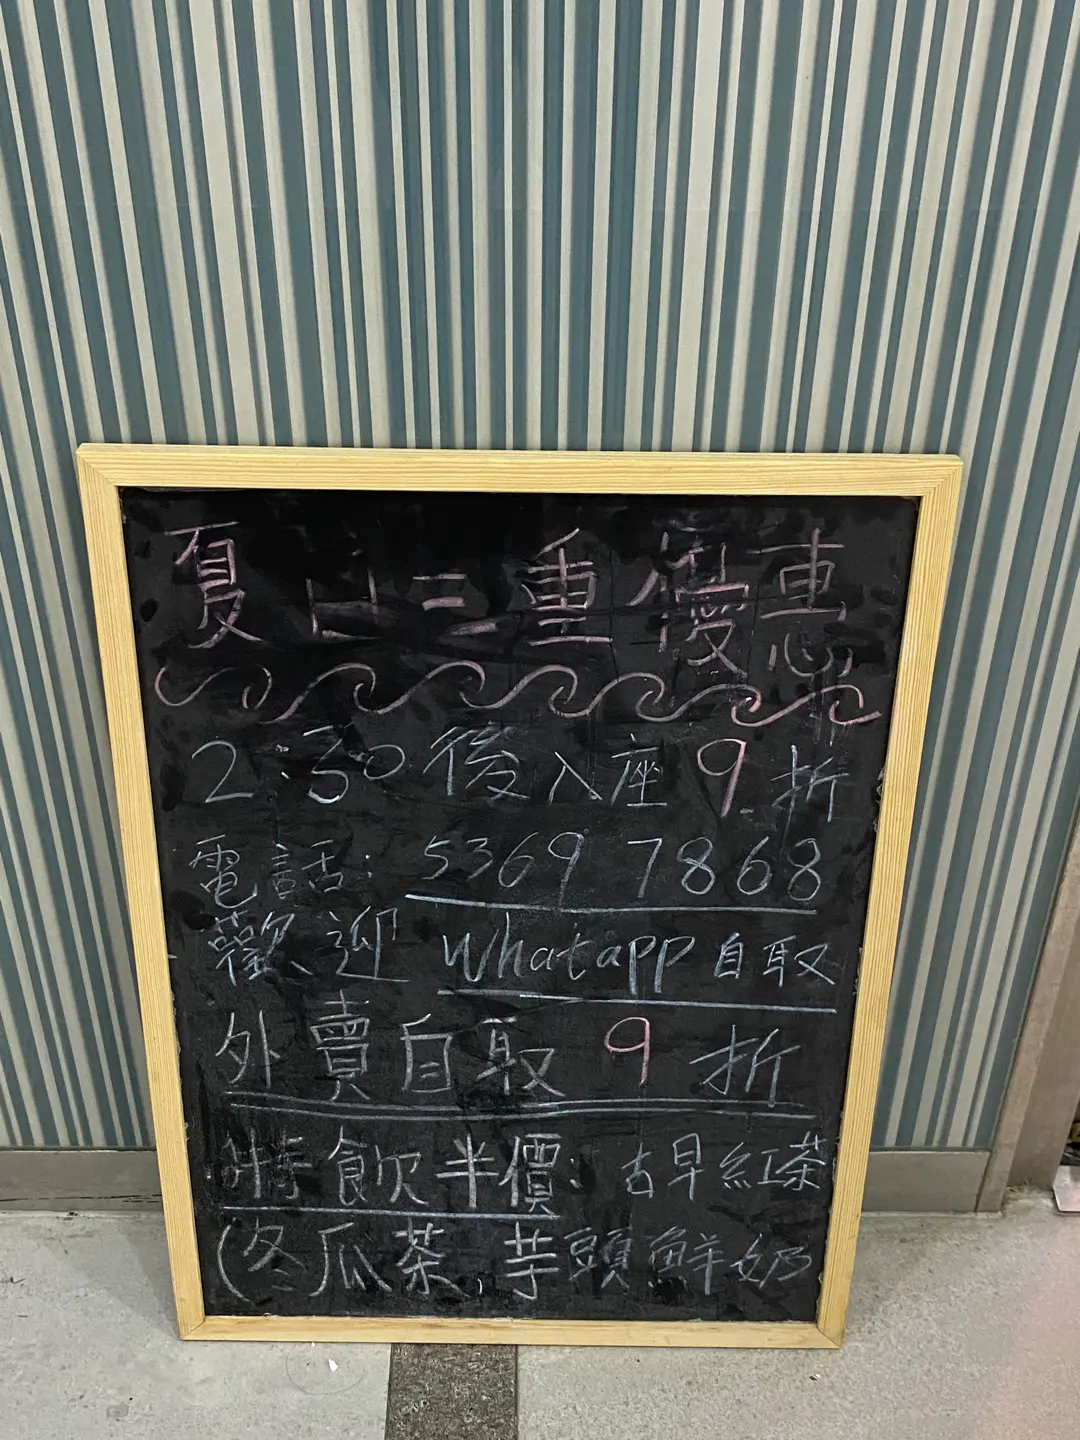 夏日三重優惠
2:30 後入座 9 折
電話: 5369 7868
歡迎 Whatapp 自取
外賣自取 9 折
特飲半價: 古早紅茶
(冬瓜茶, 芋頭鮮奶